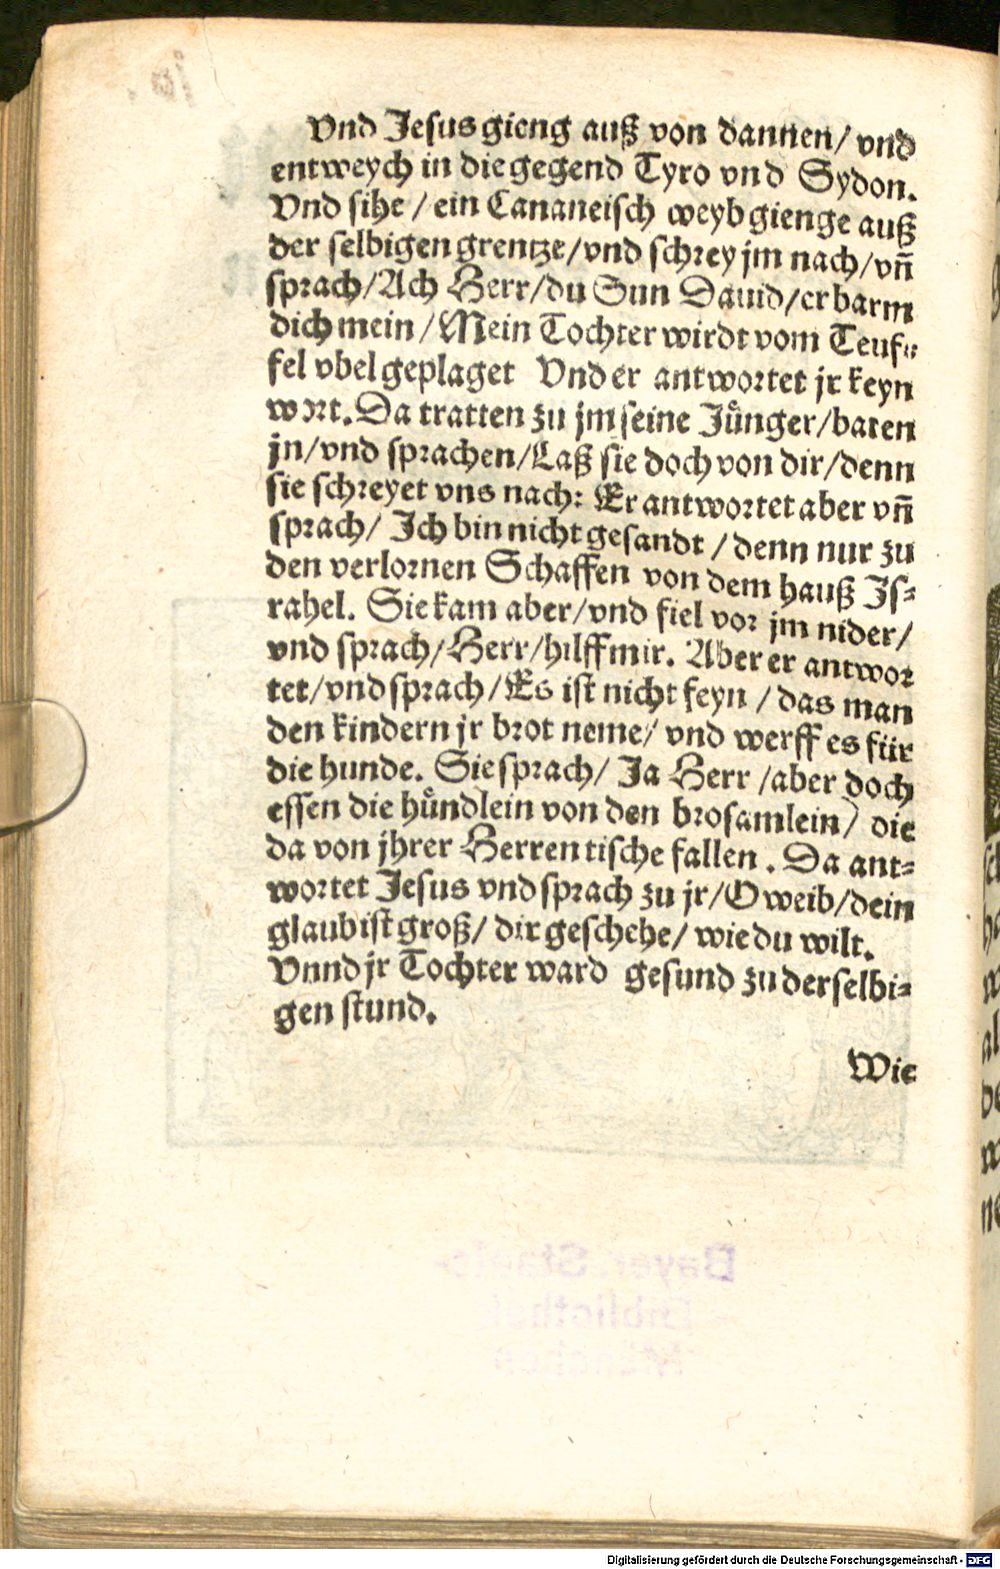 Vnd Jesus gieng auß von dannen/ vnd
entweych in die gegend Tyro vnd Sydon.
Vnd sihe / ein Cananeisch weyb gienge auß
der selbigen grentze/ vnd schrey jm nach/ vñ
sprach/ Ach Herr/ du Sun Dauid/ erbarm
dich mein / Mein Tochter wirdt vom Teuf-
fel vbel geplaget Vnd er antwortet jr keyn
wort. Da tratten zu jm seine Jůnger/ baten
jn/ vnd sprachen/ Laß sie doch von dir/ denn
sie schreyet vns nach: Er antwortet aber vñ
sprach/ Ich bin nicht gesandt / denn nur zu
den verlornen Schaffen von dem hauß Is-
rahel. Sie kam aber/ vnd fiel vor jm nider/
vnd sprach/ Herr/ hilff mir. Aber er antwor
tet/ vnd sprach/ Es ist nicht feyn / das man
den kindern jr brot neme/ vnd werff es für
die hunde. Sie sprach/ Ja Herr / aber doch
essen die hůndlein von den brosamlein/ die
da von jhrer Herren tische fallen. Da ant-
wortet Jesus vnd sprach zu jr/ O weib/ dein
glaub ist groß/ dir geschehe/ wie du wilt.
Vnnd jr Tochter ward gesund zu der selbi-
gen stund.
Wie
Bayer. Staats-
Bibliothek
München
Digitalisierung gefördert durch die Deutsche Forschungsgemeinschaft - DFG